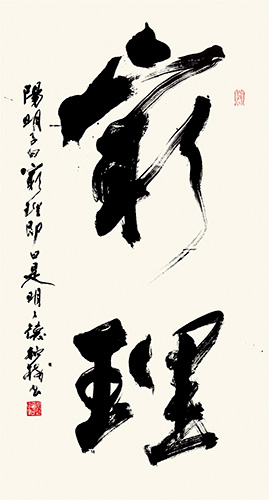 窮理
陽明子曰窮理即曰是明々德書